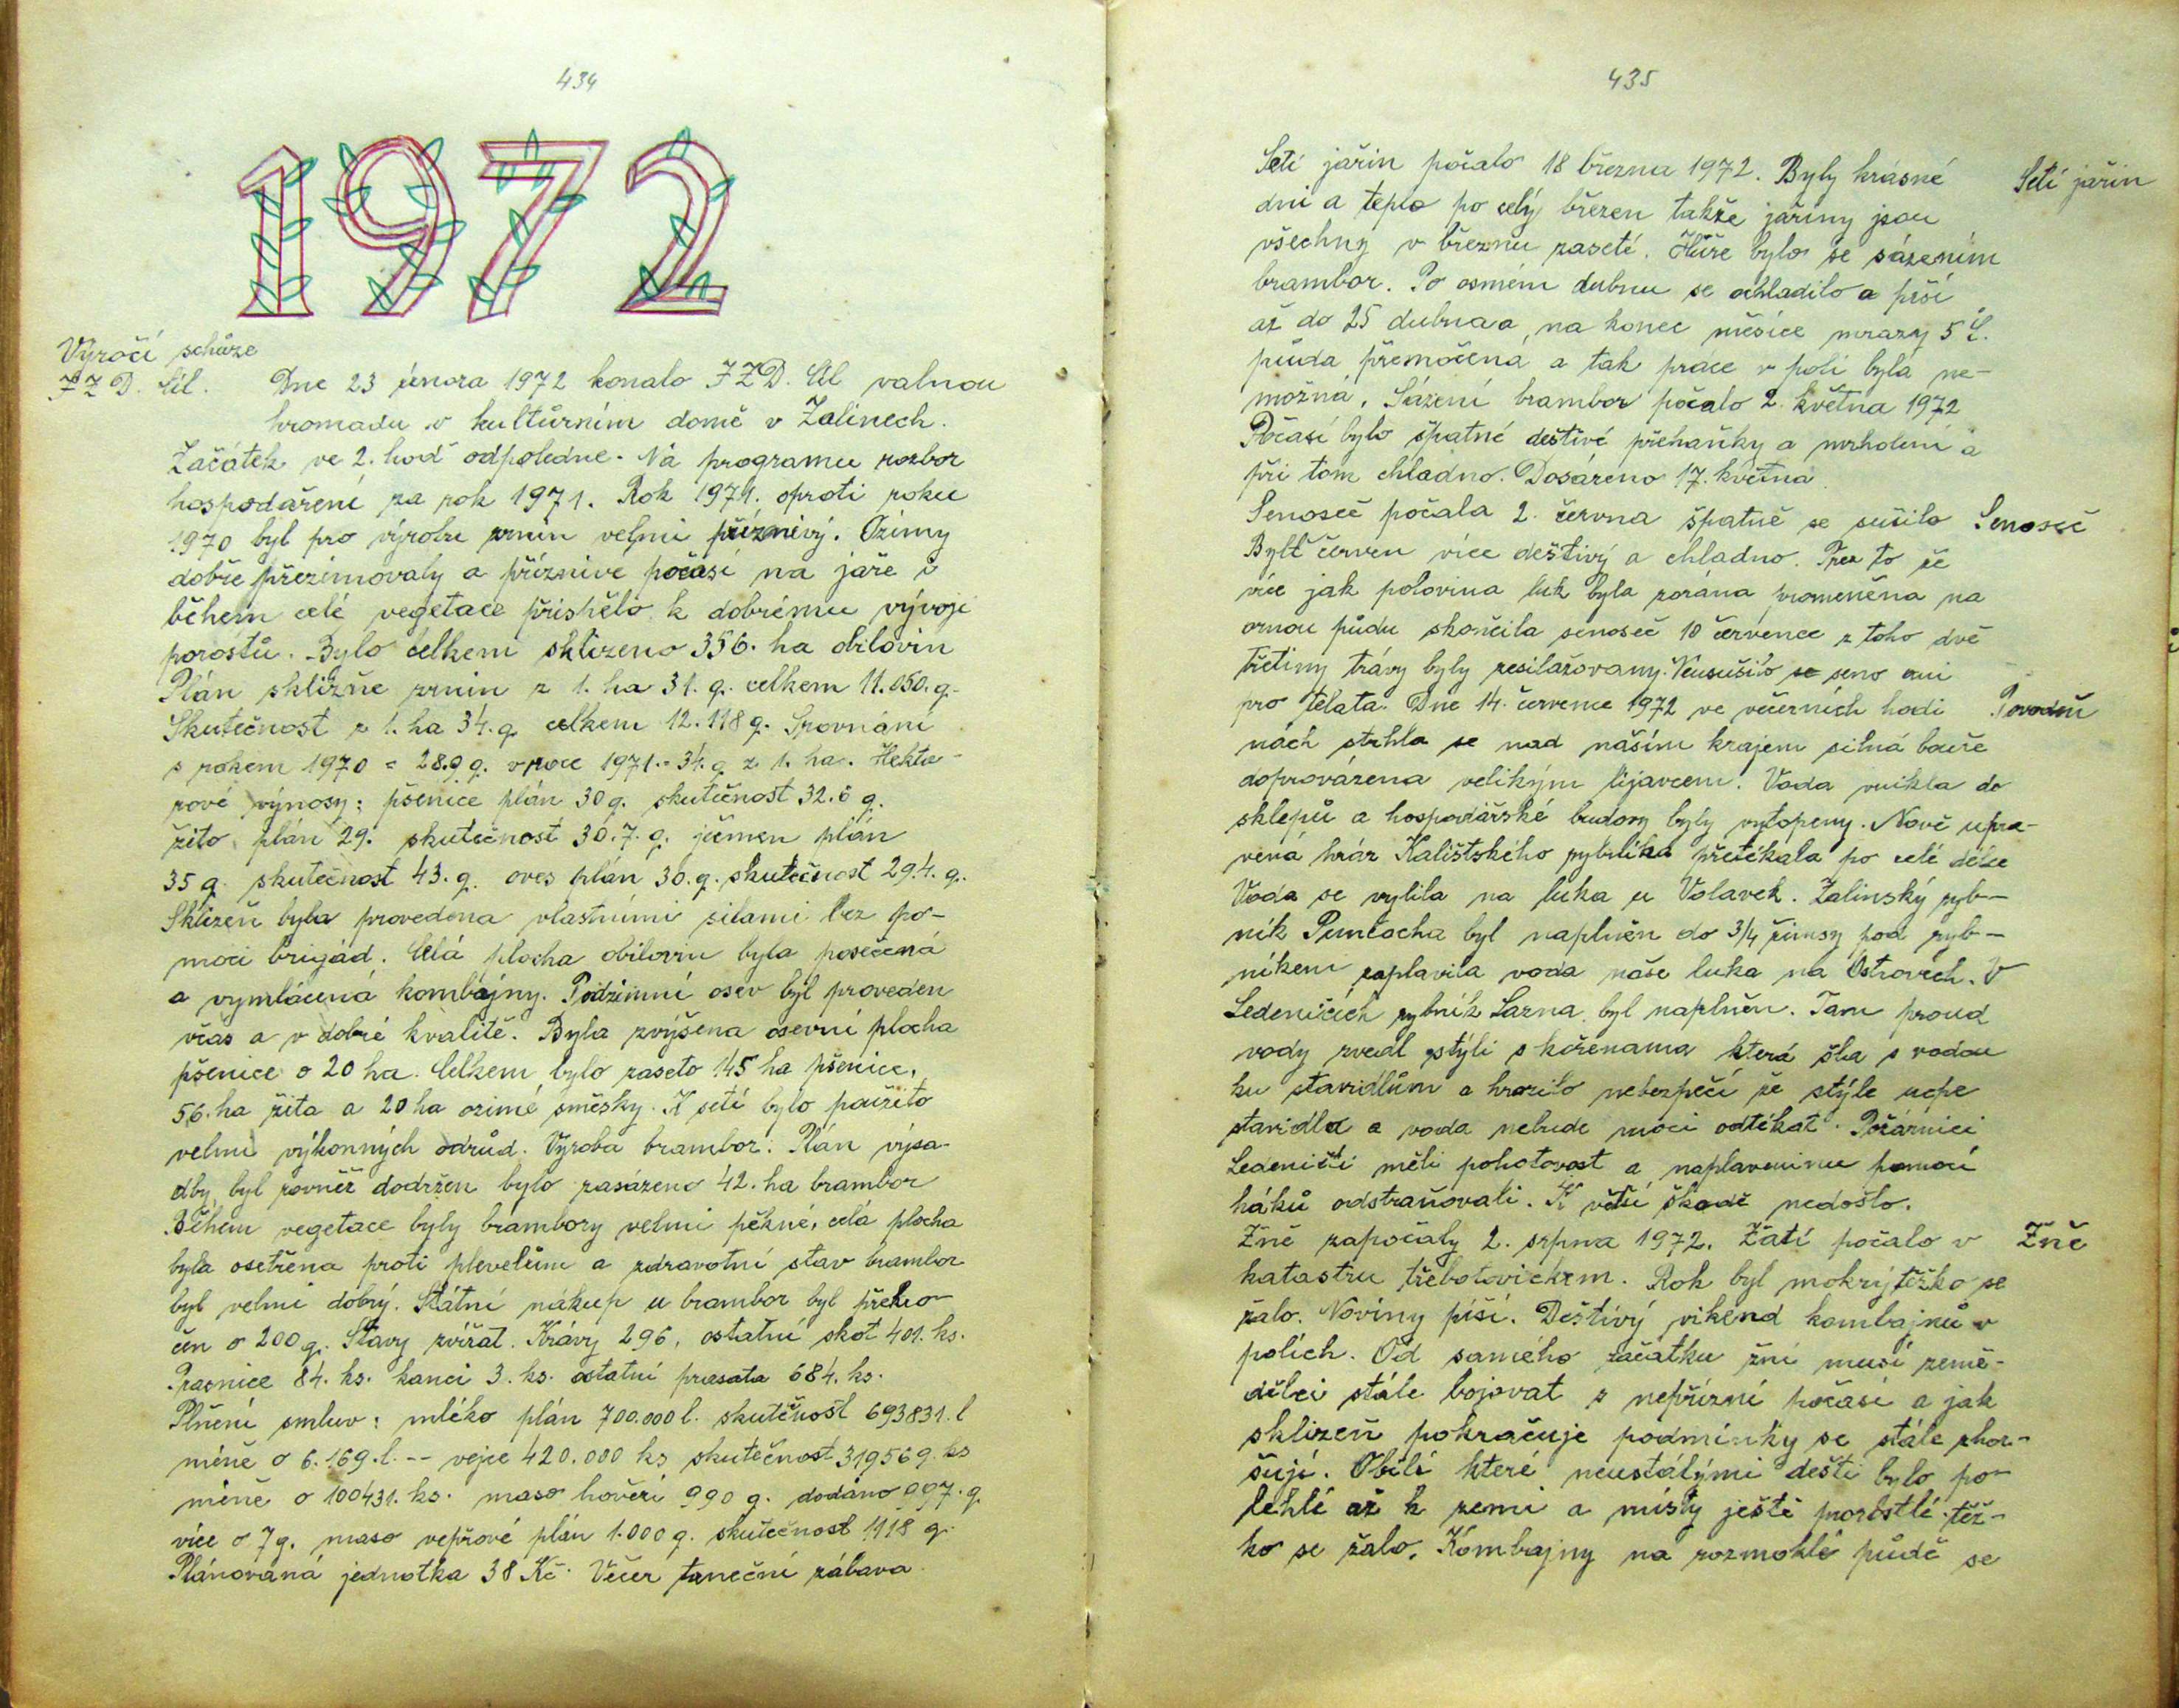 434
1972
Výročí schůze
JZD. Cíl.
Dne 23 února 1972 konalo JZD. Cíl valnou
hromadu v kulturním domě v Zalinech.
Začátek ve 2. hod odpoledne. Na programu rozbor
hospodaření za rok 1971. Rok 1971. oproti roku
1970 byl pro výrobu zrnin velmi příznivý. Ozimy
dobře přezimovaly a příznivé počasí na jaře i
během celé vegetace přispělo k dobrému vývoji
porostů. Bylo celkem sklizeno 356. ha obilovin
Plán sklizně zrnin z 1. ha 31. q. celkem 11.050. q.
Skutečnost z 1. ha 34. q celkem 12.118 q. Srovnání
s rokem 1970 = 28.9 q. v roce 1971.= 34. q z 1. ha. Hekta-
rové výnosy: pšenice plán 30 q. skutečnost 32.6 q.
žito plán 29. skutečnost 30.7. q. ječmen plán
35 q. skutečnost 43. q. oves plán 30. q. skutečnost 29.4. q.
Sklizeň byla provedena vlastními silami bez po-
moci brigád. Celá plocha obilovin byla posečená
a vymlácená kombajny. Podzimní osev byl proveden
včas a v dobré kvalitě. Byla zvýšena osevní plocha
pšenice o 20 ha. Celkem bylo zaseto 145 ha pšenice.
56. ha žita a 20 ha ozimé směsky. K setí bylo použito
velmi výkonných odrůd. Výroba brambor: Plán výsa-
dby byl rovněž dodržen bylo zasázeno 42. ha brambor
Během vegetace byly brambory velmi pěkné, celá plocha
byla ošetřena proti plevelům a zdravotní stav brambor
byl velmi dobrý. Státní nákup u brambor byl překro-
čen o 200 q. Stavy zvířat. Krávy 296, ostatní skot 401. ks.
Prasnice 84. ks. kanci 3. ks. ostatní prasata 684. ks.
Plnění smluv: mléko plán 700.000 l. skutečnost 693831. l
méně o 6.169. l. -- vejce 420.000 ks skutečnost 319569. ks
méně o 100431. ks. maso hovězí 990 q. dodáno 997. q.
více o 7 q. maso vepřové plán 1.000 q. skutečnost 1118 q.
Plánovaná jednotka 38 Kč. Večer taneční zábava.
435
Setí jařin počalo 18 března 1972. Byly krásné
Setí jařin
dni a teplo po celý březen takže jařiny jsou
všechny v březnu zaseté. Hůře bylo se sázením
brambor. Po osmém dubnu se ochladilo a prší
až do 25 dubna a na konec měsíce mrazy 5°C.
půda přemočená a tak práce v poli byla ne-
možná. Sázení brambor počalo 2. května 1972
Počasí bylo špatné deštivé přeháňky a mrholení a
při tom chladno. Dosázeno 17. května.
Senoseč počala 2. června špatně se sušilo
Senoseč
Bylt červen více deštivý a chladno. Přes to že
více jak polovina luk byla zorána proměněna na
ornou půdu skončila senoseč 10 července z toho dvě
třetiny trávy byly zesilážovany. Neusušilo se seno ani
pro telata. Dne 14. července 1972 ve večerních hodi
Povodeň
nách strhla se nad naším krajem silná bouře
doprovázena velikým lijavcem. Voda vnikla do
sklepů a hospodářské budovy byly vytopeny. Nově upra-
vená hráz Kalištského rybníka přetékala po celé délce
Voda se vylila na luka u Volavek. Zalinský ryb-
ník Punčocha byl naplněn do 3/4 římsy pod ryb-
níkem zaplavila voda naše luka na Ostrovech. V
Ledenicích rybník Lazna byl naplněn. Tam proud
vody zvedl stýlí s kořenama která šla s vodou
ku stavidlům a hrozilo nebezpečí že stýle ucpe
stavidla a voda nebude moci odtékat. Požárníci
Ledeničtí měli pohotovost a naplaveninu pomocí
háků odstraňovali. K větší škodě nedošlo.
Žně započaly 2. srpna 1972. Žatí počalo v
Žně
katastru třebotovickem. Rok byl mokrý těžko se
žalo. Noviny píší. Deštivý vikend kombajnů v
polích. Od samého začátku žní musí země-
dělci stále bojovat s nepřízní počasí a jak
sklizeň pokračuje podmínky se stále zhor-
šují. Obilí které neustálými dešti bylo po
lehlé až k zemi a místy ještě prorostlé těž-
ko se žalo. Kombajny na rozmoklé půdě se